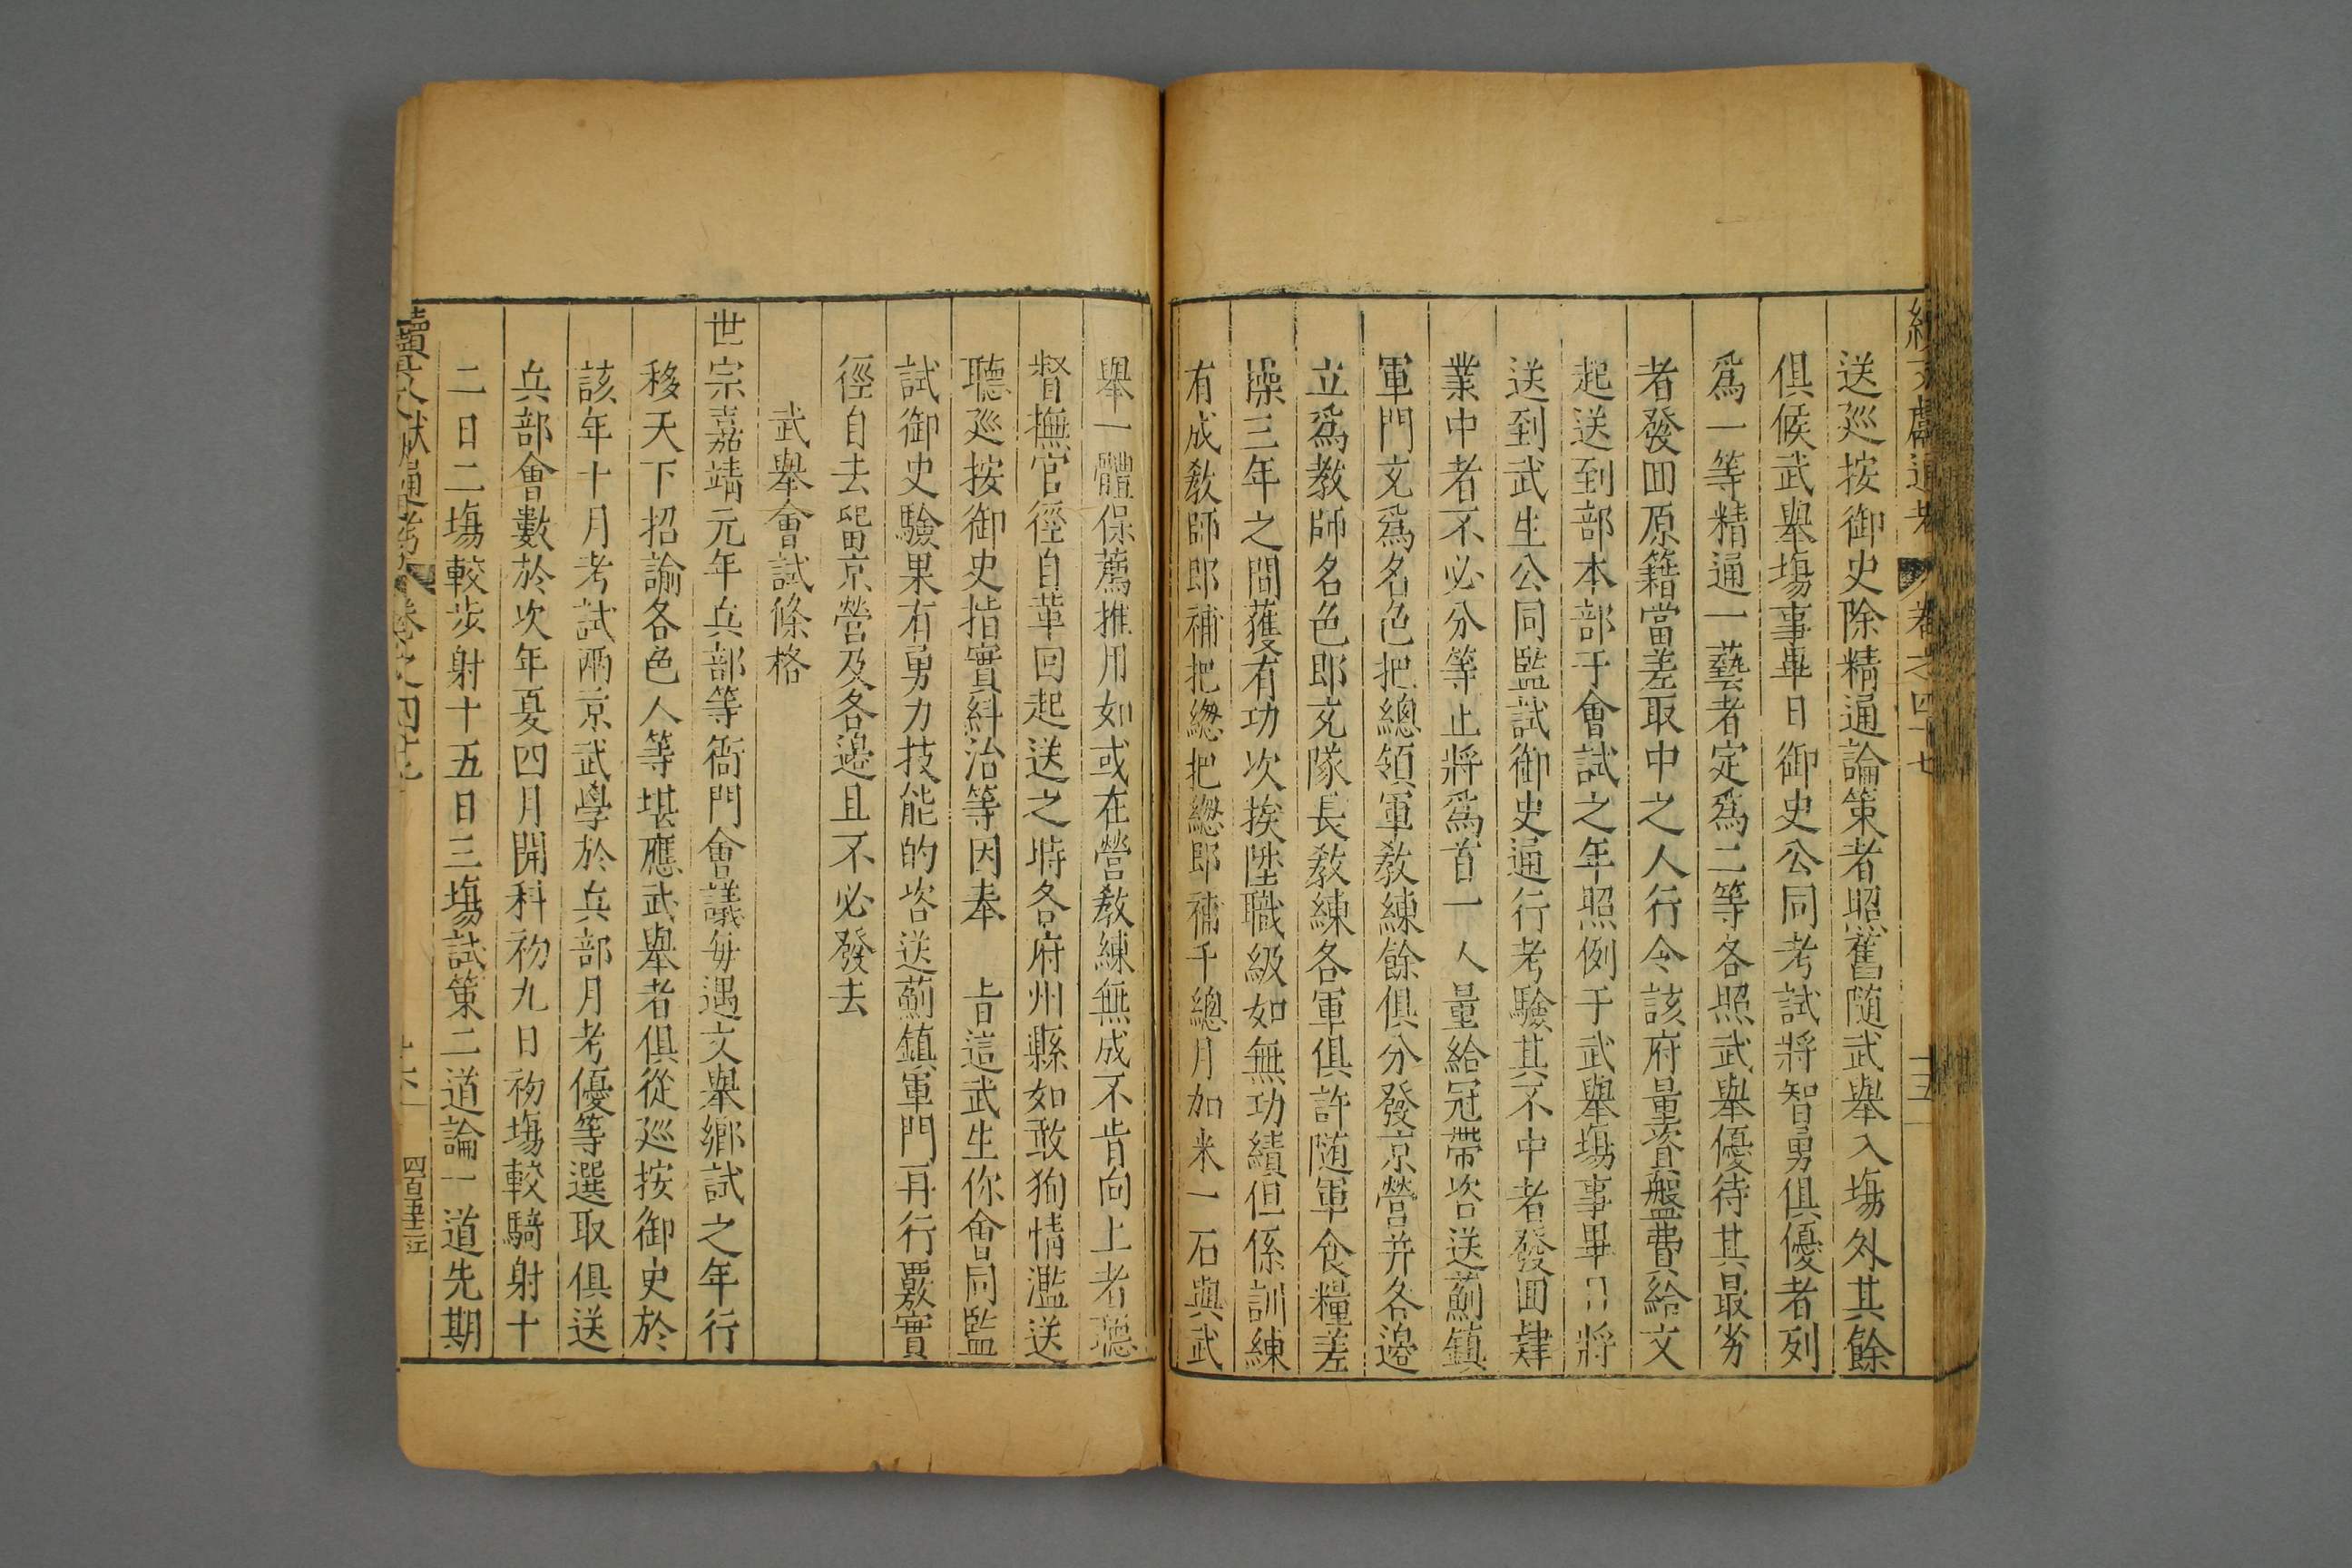 續文獻通考 卷之四十七 十五
送廵按御史除精通論策者照舊随武舉入塲外其餘
俱候武舉塲事畢日御史公同考試將智勇俱優者列
爲一等精通一藝者定爲二等各照武舉優待其最劣
者發回原籍當差取中之人行令該府量資盤費給文
起送到部本部于會試之年照例于武舉塲事畢日將
送到武生公同監試御史通行考驗其不中者發回肄
業中者不必分等止將爲首一人量給冠帶咨送薊鎮
軍門充爲名色把總領軍教練餘俱分發京營并各邊
立爲教師名色郎充隊長教練各軍俱許随軍食糧差
操三年之間獲有功次挨陞職級如無功績但係訓練
有成教師郎補把緫把緫郎補千總月加米一石與武
舉一體保薦推用如或在營教練無成不肯向上者聽
督撫官徑自革回起送之時各府州縣如敢狥情濫送
聽廵按御史指實糾治等因奉 旨這武生你會同監
試御史驗果有勇力技能的咨送薊鎮軍門再行覈實
徑自去留京營及各邊且不必發去
武舉會試條格
世宗嘉靖元年兵部等衙門會議每遇文舉鄉試之年行
移天下招諭各色人等堪應武舉者俱從廵按御史於
該年十月考試兩京武學於兵部月考優等選取俱送
兵部會數於次年夏四月開科初九日初塲較騎射十
二日二塲較步射十五日三塲試策二道論一道先期
續文獻通考 卷之四十七